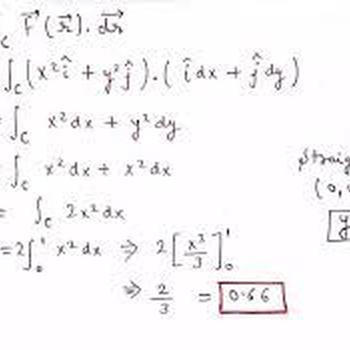 C F⃗(r⃗).d⃗r
∫C (x²î + y²ĵ).(îdx + ĵdy)
= ∫C x²dx + y²dy
= ∫C x²dx + x²dx
= ∫C 2x²dx
= 2∫₀¹ x²dx ⇒ 2[x³/3]₀¹
⇒ 2/3 = 0.66
Straig
(0,
y